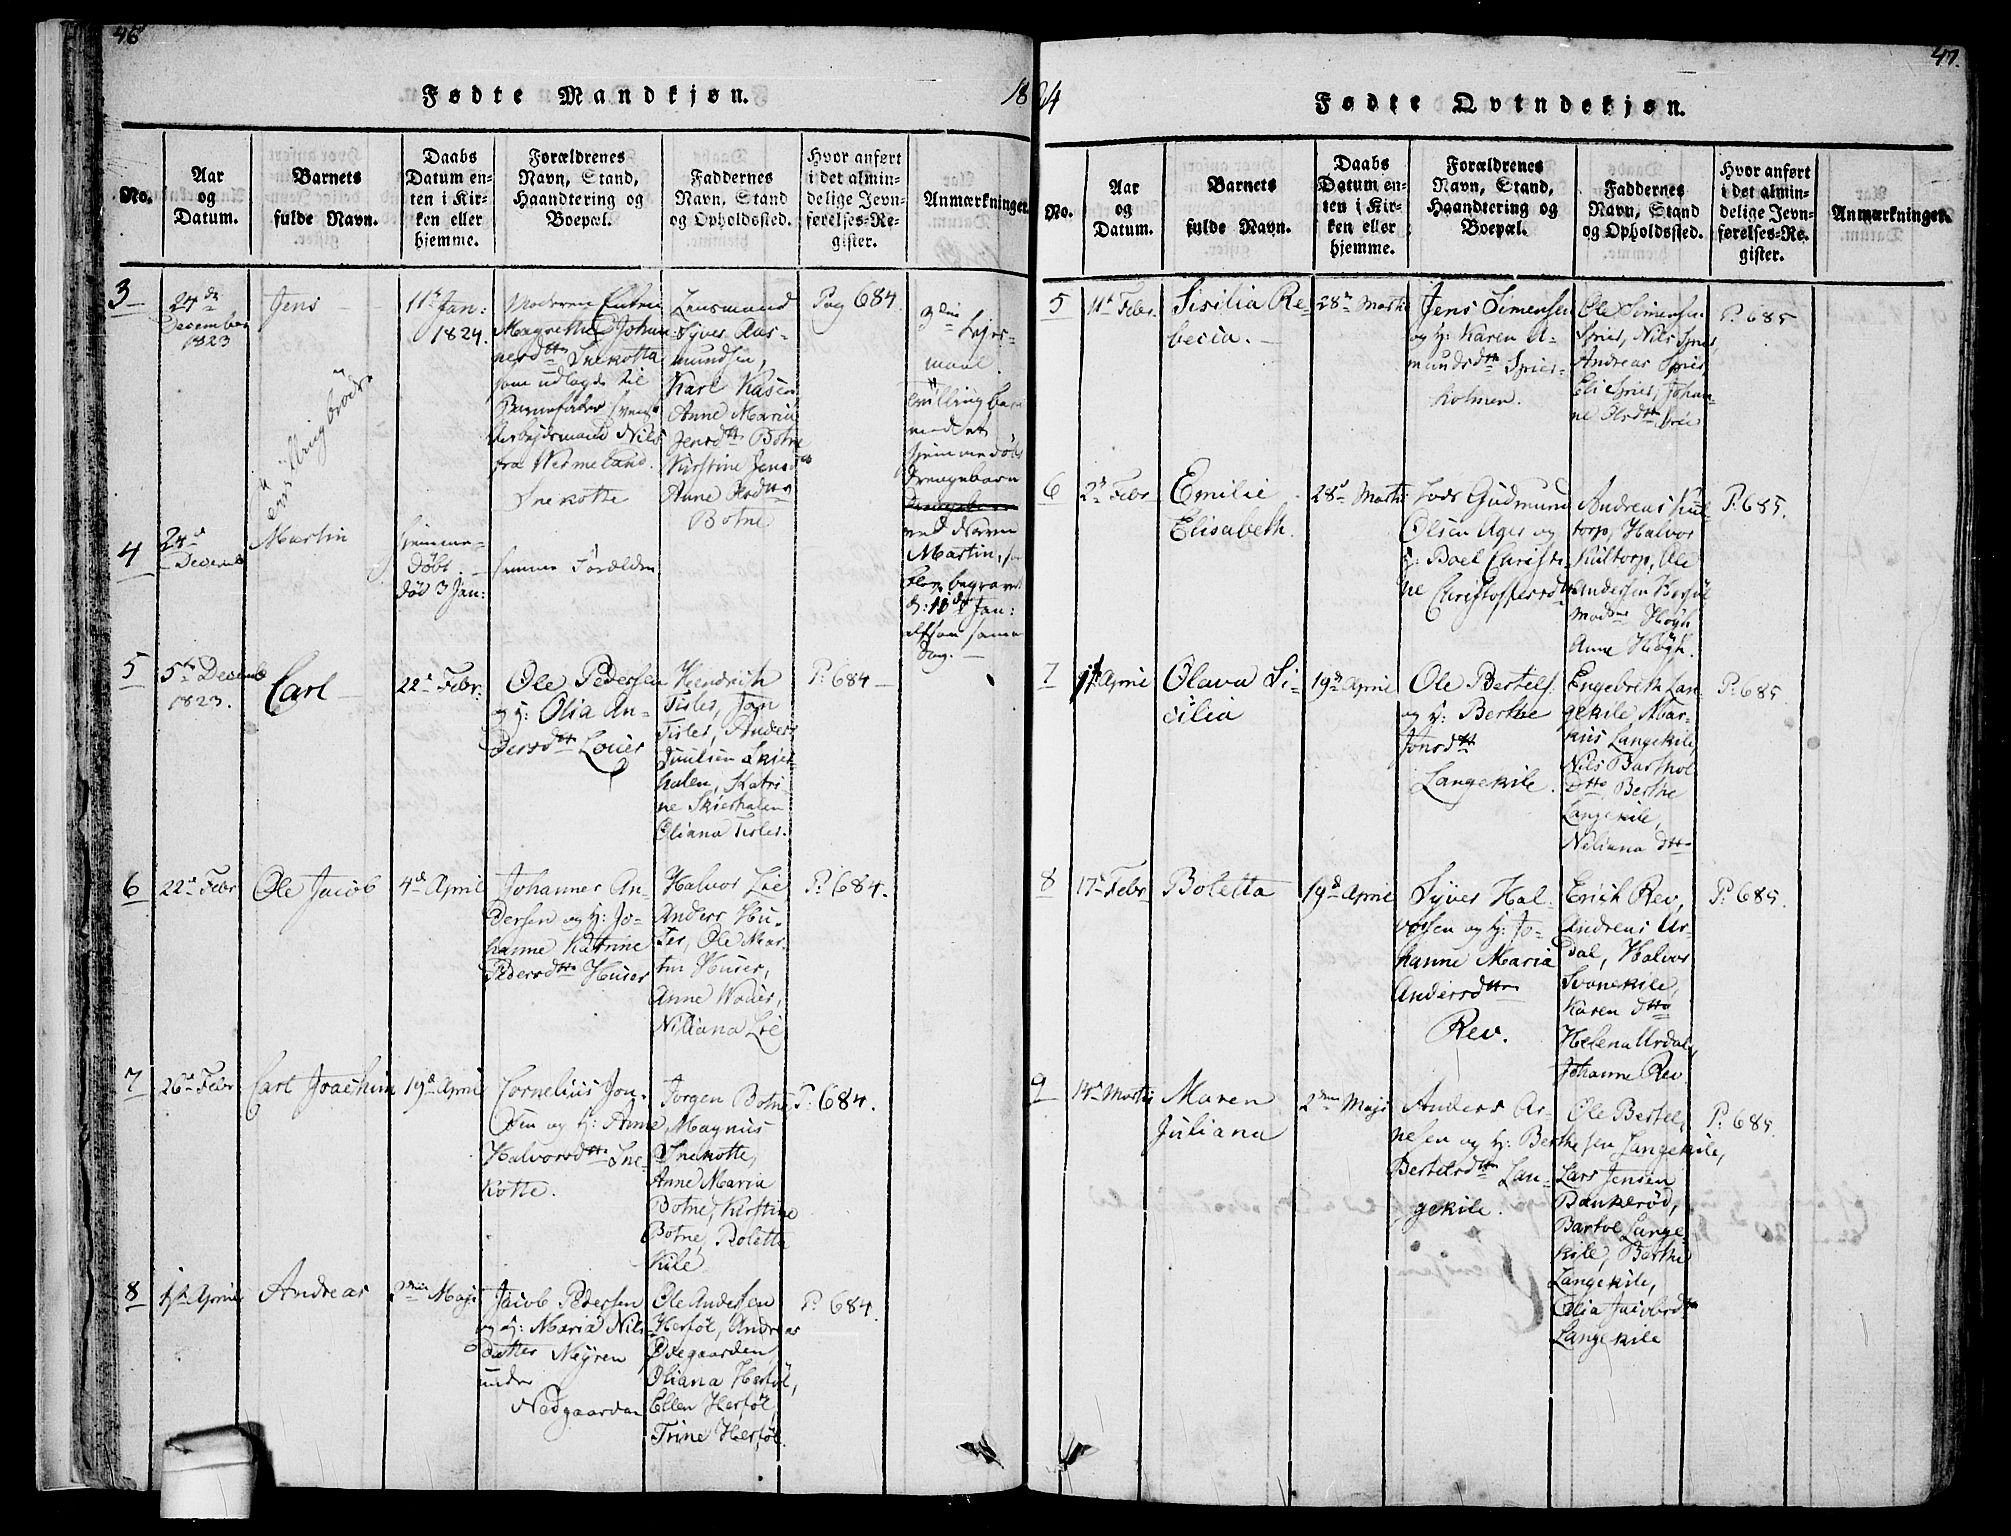 46
Fødte Mandkjøn.
18
No.
Aar
og
Datum.
Barnets
fulde Navn.
Daabs
Datum en-
ten i Kir-
ken eller
hjemme.
Forældrenes
Navn, Stand,
Haandtering og
Boepæl.
Faddernes
Navn, Stand
og Opholdssted.
Hvor anført
i det almin-
delige Jevn-
førelses-Re-
gister.
Anmærkninger.
3
24de
December
1823
Jens
11te Jan:
1824.
Moderen
Magrethe Johan-
nesdtt Snekotta
som udlagde til
Barnefader
Arbejdsmand Nils
fra Wermeland.
Snekotte
Lensmand
Syver Aas-
mundsen,
Karl Kasen
Anne Maria
Jensdtt Botne
Kirstine Jensd
Anne Olsdtt
Botne
Pag 684
Lejer-
maal.
Tvillingbarn
med et
hjemmedøbt
Drengebarn
ved Navn
Martin, som
blev begravet
d: 11te Jan:
samme
Dag.
Tvillingbrødre
4
24de
Decemb
Martin
hjemme-
døbt.
død 3 Jan:
samme Forældre
5
5te Decemb
1823.
Carl
22de Febr:
Ole Pedersen
og h: Olia An-
dersdtt Louer
Hendrich
Tisler, Jan
Tisler, Anders
Juulsen Skier-
halen, Katri-
ne Skierhalen
Oliana Tisler.
P: 684
6
22de Febr
Ole Jacob
4de April
Johannes An-
dersen og h: Jo-
hanne Katrine
Pedersdtt Huser
Halvor Lie
Anders Hu-
ser, Ole Mar-
tin Huser,
Anne Wouer,
Niliana Lie
P: 684.
7
26de Febr
Carl Joachim
19de April
Cornelius Jon-
sen og h: Anne
Halvorsdtt Sne-
kotte.
Jørgen Botne
Magnus
Snekotte,
Anne Maria
Botne, Kirstine
Botne, Boletta
Kile
P: 684.
8
1ste April
Andreas
2den Maji
Jacob Pedersen
og h: Maria Nils-
datter Nejren
under
Nedgaarden
Ole Andersen
Herføl, Andreas
Øvegaarden
Oliana Herføl,
Ellen Herføl,
Trine Herføl.
P: 684.
47.
24
Fødte Qvindekjøn.
No.
Aar
og
Datum.
Barnets
fulde Navn.
Daabs
Datum en-
ten i Kir-
ken eller
hjemme.
Forældrenes
Navn, Stand,
Haandtering og
Boepæl.
Faddernes
Navn, Stand
og Opholdssted.
Hvor anført
i det almin-
delige Jevn-
førelses-Re-
gister.
Anmærkninger.
5
11te Febr.
Sisilia Re-
becca.
28de Marti
Jens Simensen
og h: Karen A-
mundsdtt Spier-
holmen.
Ole Simensen
Spier, Nils Spier,
Andreas Spier
Eli Spier, Johan-
ne Olsdtt Spier
P: 685
6
2de Febr
Emilie
Elisabeth.
28de Marti
Lods Gudmund
Olsen Ager og
h: Boel Christi-
ne Christoffersdtt
Andreas Kul-
torp, Halvor
Kultorp, Ole
Andersen Herføl
Madme Høgh
Anne Høgh.
P: 685.
7
1ste April
Olava Si-
cilia
19de April
Ole Bertels.
og h: Berthe
Jonsdtt
Langekile.
Engebreth Lan-
gekile, Mar-
kus Langekile,
Nils Barthol
dtto, Berthe
Langekile,
Niliana dtto
P: 685
8
17de Febr
Boletta
19de April
Syver Hal-
vorsen og h: Jo-
hanne Maria
Andersdtt
Rev.
Erich Rev,
Andreas Ur-
dal, Halvor
Svanekile,
Karen dtto
Helena Urdal,
Johanne Rev
P: 685.
9
14de Marti
Maren
Juliana
2den Maji
Anders Ar-
nesen og h: Berthe
Bertelsdtt Lan-
gekile.
Ole Bertel-
sen Langekile,
Lars Jensen
Bankerød,
Bartol Lange-
kile, Berthe
Langekile,
Olia Jacobsdtt
Langekile
P: 685.